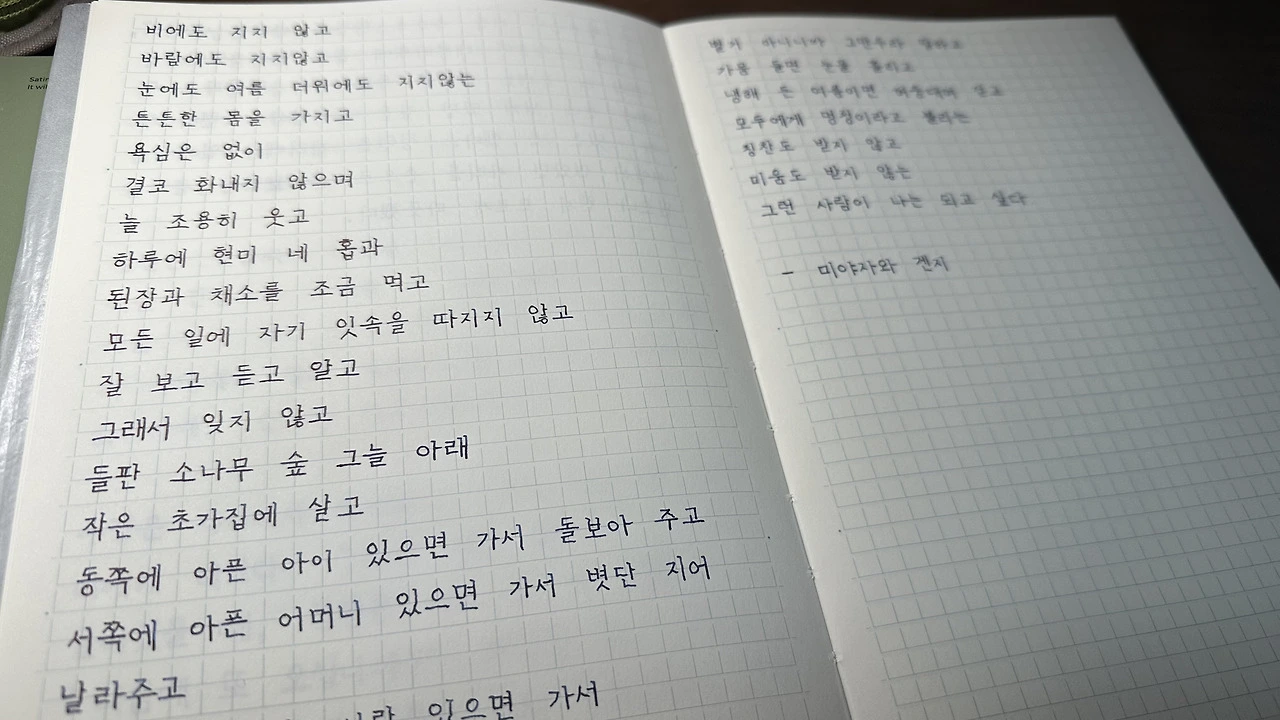 비에도 지지 않고
바람에도 지지않고
눈에도 여름 더위에도 지지않는
튼튼한 몸을 가지고
욕심은 없이
결코 화내지 않으며
늘 조용히 웃고
하루에 현미 네 홉과
된장과 채소를 조금 먹고
모든 일에 자기 잇속을 따지지 않고
잘 보고 듣고 알고
그래서 잊지 않고
들판 소나무 숲 그늘 아래
작은 초가집에 살고
동쪽에 아픈 아이 있으면 가서 돌보아 주고
서쪽에 아픈 어머니 있으면 가서 볏단 지어
날라주고
있으면 가서
별거 아니니까 그만두라 말하고
가뭄 들면 눈물 흘리고
냉해 든 여름이면 허둥대며 걷고
모두에게 멍청이라고 불리는
칭찬도 받지 않고
미움도 받지 않는
그런 사람이 나는 되고 싶다
- 미야자와 겐지